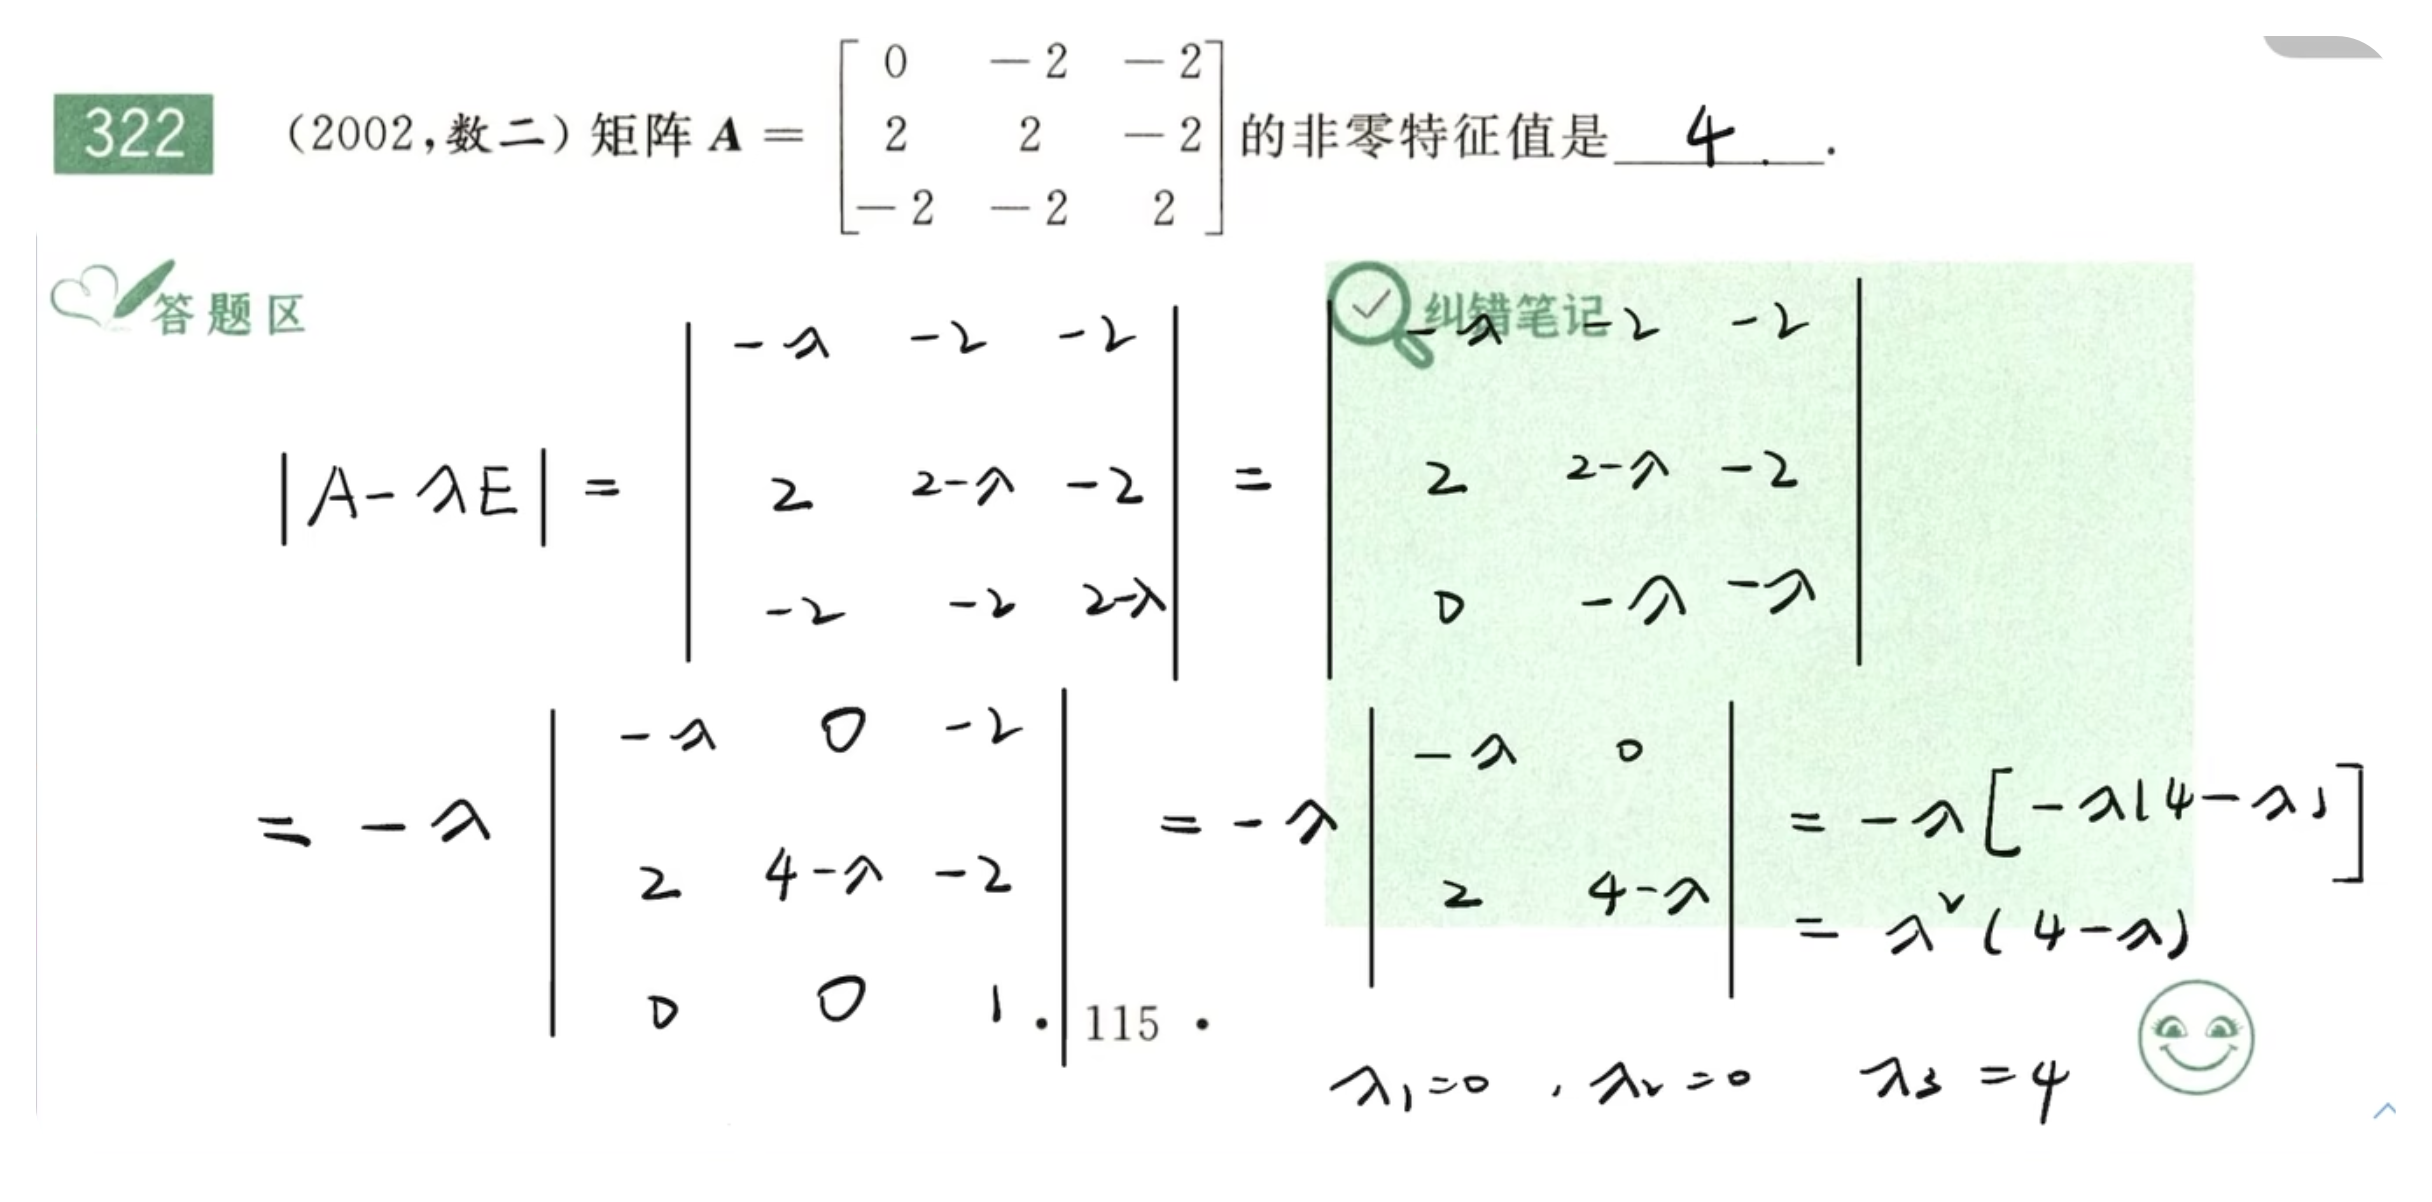 322 (2002,数二)矩阵 A = [0 -2 -2; 2 2 -2; -2 -2 2] 的非零特征值是 4 .
答题区
纠错笔记
|A-λE| = |-λ -2 -2; 2 2-λ -2; -2 -2 2-λ| = |-λ -2 -2; 2 2-λ -2; 0 -λ -λ|
= -λ |-λ 0 -2; 2 4-λ -2; 0 0 1| = -λ |-λ 0; 2 4-λ| = -λ[-λ(4-λ)]
= λ²(4-λ)
· 115 ·
λ₁=0 , λ₂=0 λ₃=4